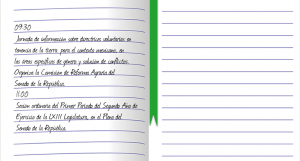 09:30
Jornada de información sobre directrices voluntarias en
tenencia de la tierra: para el contexto mexicano, en
las áreas específicas de género y solución de conflictos.
Organiza la Comisión de Reforma Agraria del
Senado de la República.
11:00
Sesión ordinaria del Primer Periodo del Segundo Año de
Ejercicio de la LXIII Legislatura, en el Pleno del
Senado de la República.